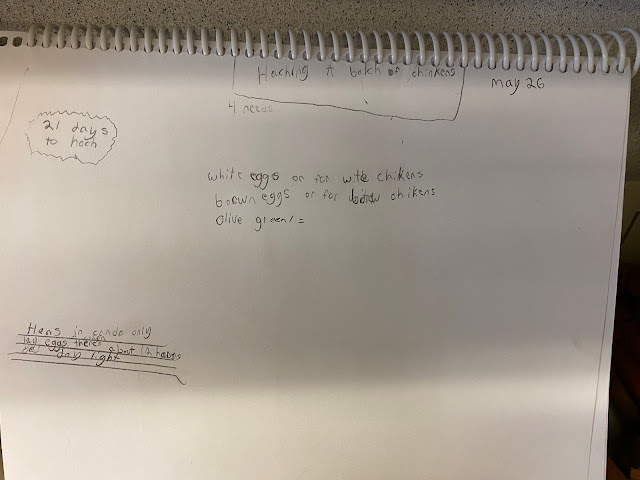 Haching A batch of chinkens
may 26
4 needs
21 days
to hach
white eggs or for wite chikens
brown eggs or for chikens
Olive green / =
Hens in only
lay eggs theres about 12 hours
day light